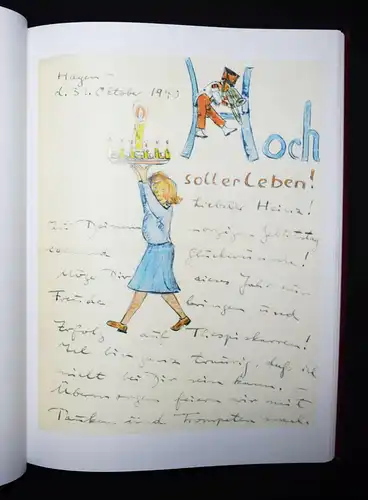 Hagen
d. 31. Oktober 19
Hoch
soll er Leben!
Liebster Heinz!
zu Deinem morgigen Geburtstag
Glückwünsche!
Möge Dir dieses Jahr nur
Freude bringen und
Erfolg auf
bin ganz traurig, daß ich
nicht bei Dir sein kann. –
Übermorgen feiern wir mit
Pauken und Trompeten nach.